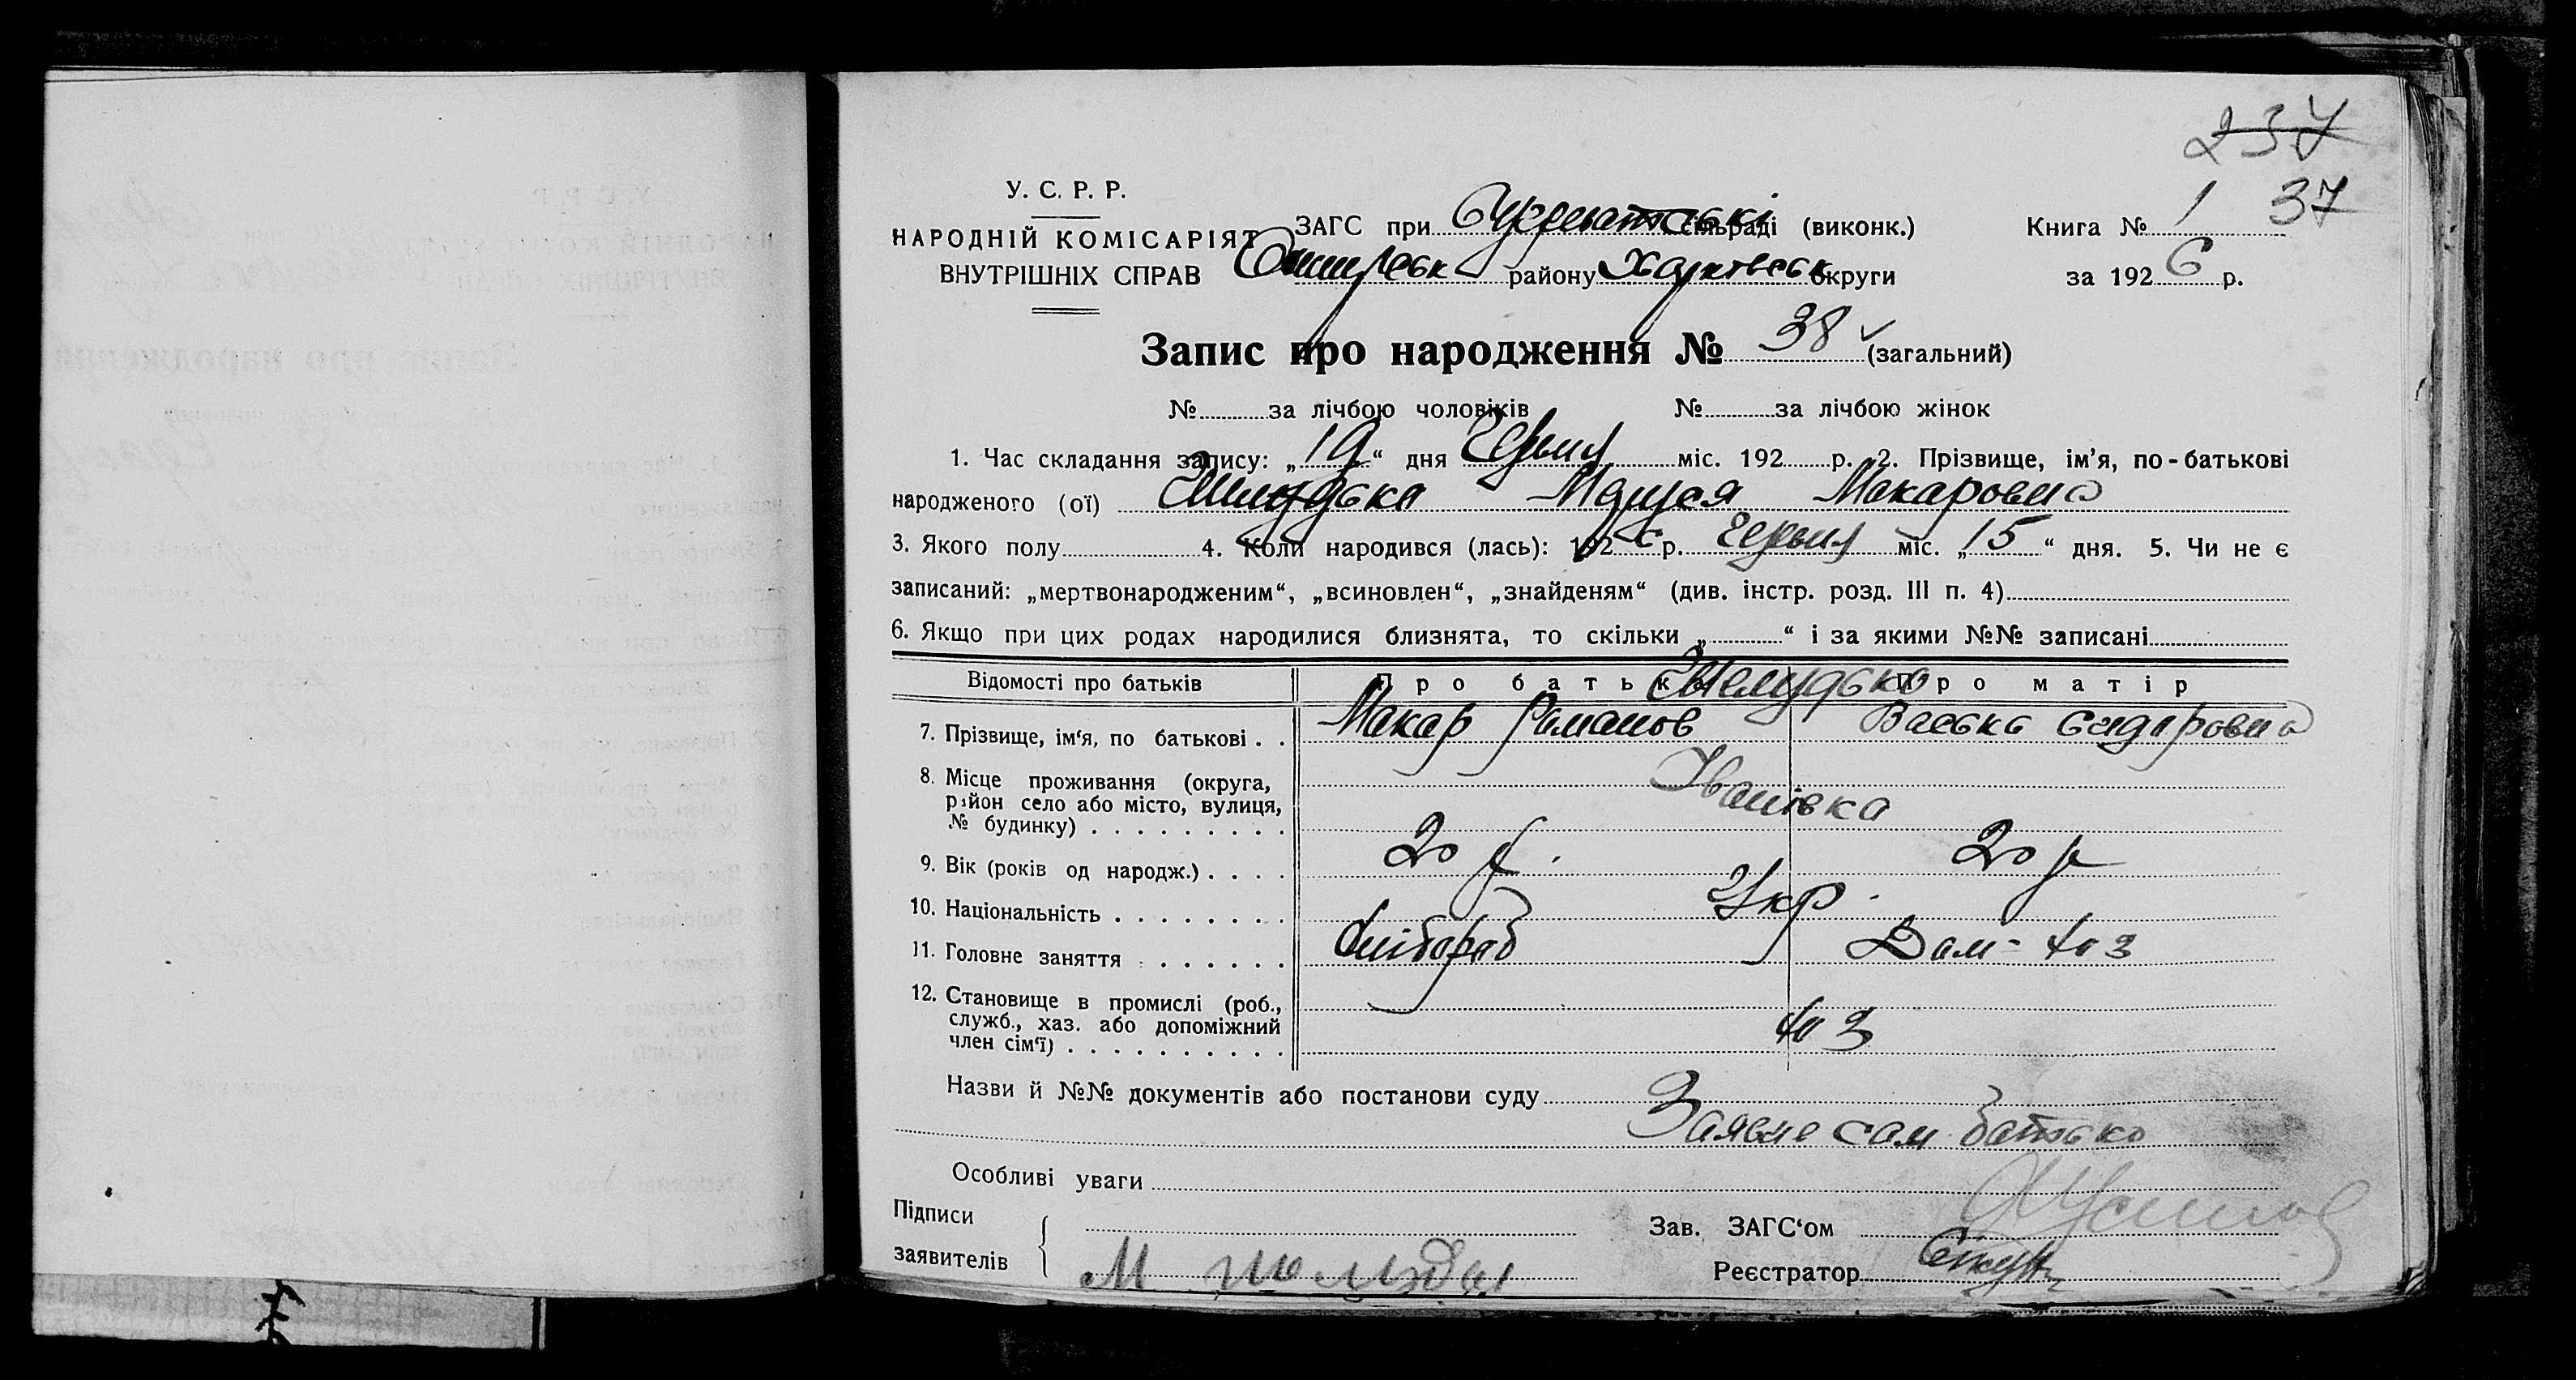 237
1 37
У. С. Р. Р.
НАРОДНІЙ КОМІСАРІЯТ
ВНУТРІШНІХ СПРАВ
ЗАГС при сільраді (виконк.)
району Харковськ округи
Книга №
за 1926 р.
Запис про народження № 38 (загальний)
№ за лічбою чоловіків № за лічбою жінок
1. Час складання запису: „19“ дня Червня міс. 192 р. 2. Прізвище, ім'я, по-батькові
народженого (ої) Маруся Макаровна
3. Якого полу 4. Коли народився (лась): 1926 р. червня міс. „15“ дня. 5. Чи не є
записаний: „мертвонародженим“, „всиновлен“, „знайденям“ (див. інстр. розд. III п. 4)
6. Якщо при цих родах народилися близнята, то скільки „ “ і за якими №№ записані
Відомості про батьків Про батька Про матір
Шелудько
7. Прізвище, ім'я, по батькові . . Макар Романов Васька Сидоровна
8. Місце проживання (округа,
район село або місто, вулиця,
№ будинку) . . . . . . . . . Іванівка
9. Вік (років од народж.) . . . . 20 р. 20 р
10. Національність . . . . . . . . Укр.
11. Головне заняття . . . . . . . Хлібороб Дом-
12. Становище в промислі (роб.,
служб., хаз. або допоміжний
член сім'ї) . . . . . . . . . .
Назви й №№ документів або постанови суду
Заявив сам батько
Особливі уваги
Підписи
заявителів
М
Зав. ЗАГС'ом
Реєстратор